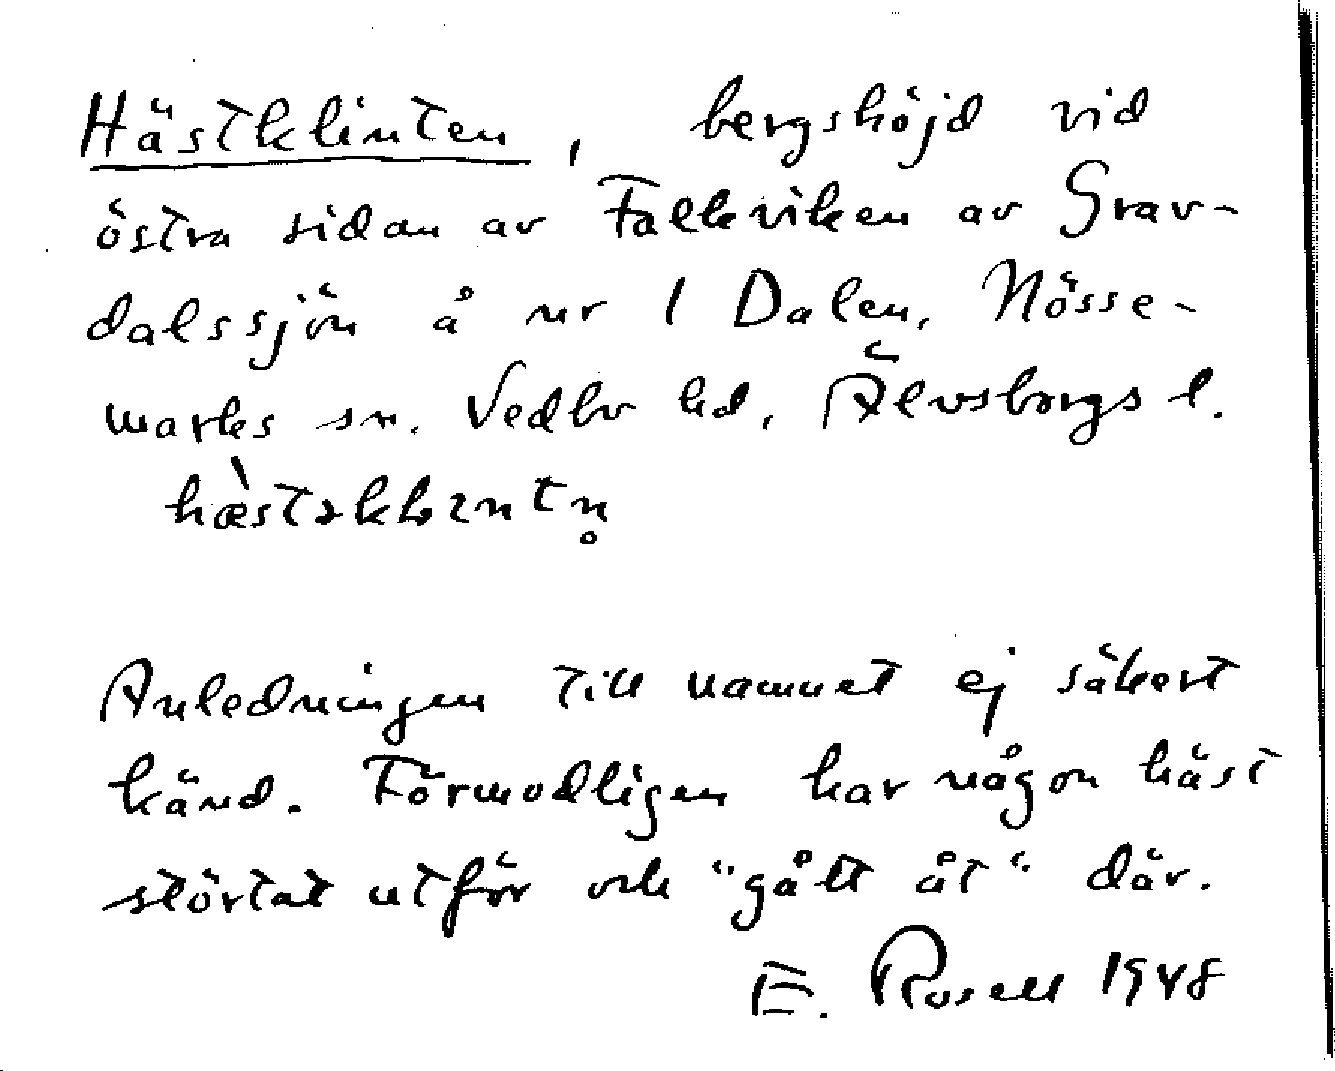 Hästklinten, bergshöjd vid
östra sidan av Falkviken av Grav-
dalssjön å nr 1 Dalen, Nösse-
marks sn. Vedbo hd, Älvsborgs l.
Anledningen till namnet ej säkert
känd. Förmodligen har någon häst
störtat utför och "gått åt" där.
E. Rosell 1948